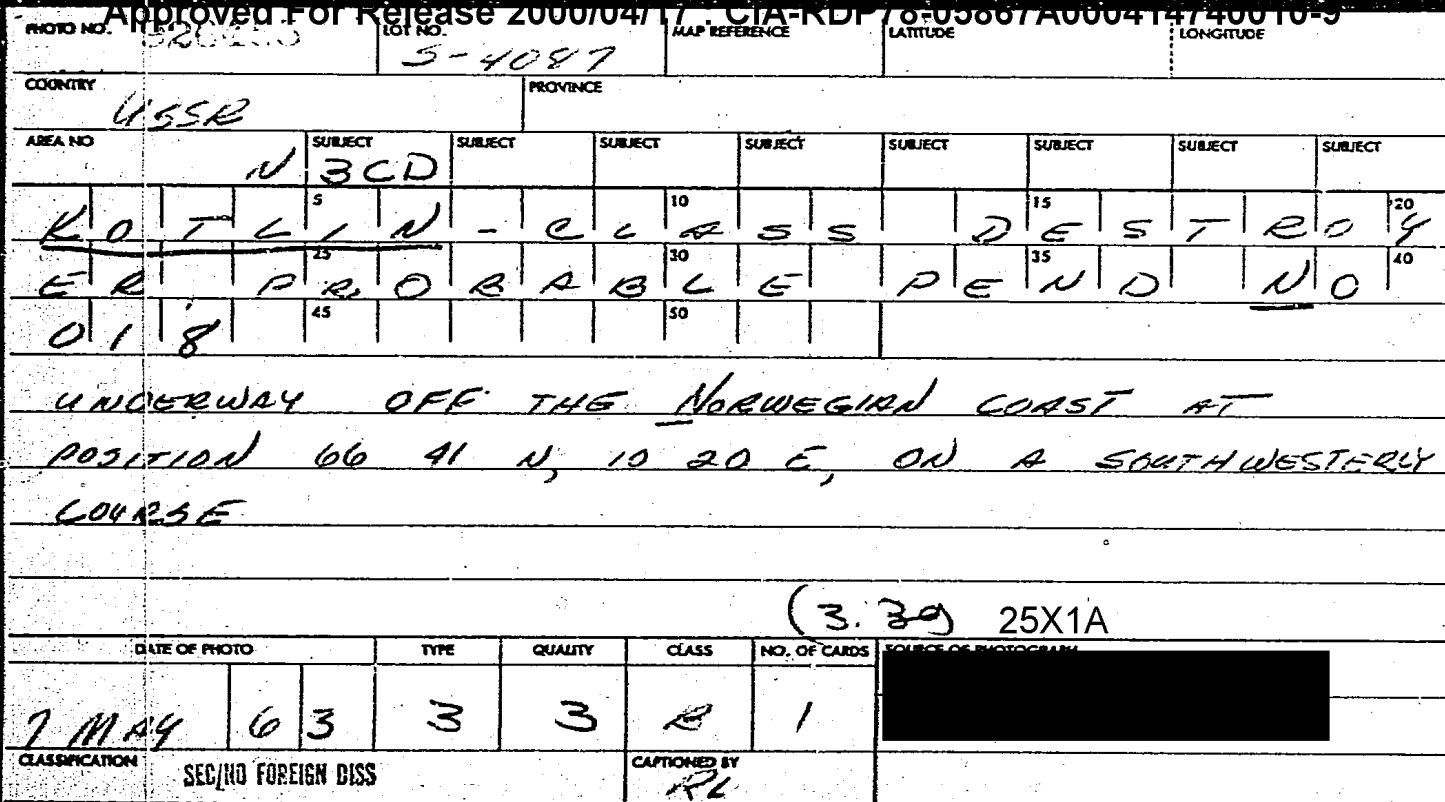 Approved For Release 2000/04/17 : CIA-RDP78-05867A000414740010-9
PHOTO NO. LOT NO. MAP REFERENCE LATITUDE LONGITUDE
S-4087
COUNTRY PROVINCE
USSR
AREA NO SUBJECT SUBJECT SUBJECT SUBJECT SUBJECT SUBJECT SUBJECT SUBJECT
N 3CD
5 10 15 20
KOTLIN-CLASS DESTROY
25 30 35 40
ER PROBABLE PEND NO
45 50
018
UNDERWAY OFF THE NORWEGIAN COAST AT
POSITION 66 41 N, 10 20 E, ON A SOUTHWESTERLY
COURSE
(3. 25X1A
DATE OF PHOTO TYPE QUALITY CLASS NO. OF CARDS SOURCE OF PHOTOGRAPH
7 MAY 63 3 3 1
CLASSIFICATION SEC/NO FOREIGN DISS CAPTIONED BY
RL